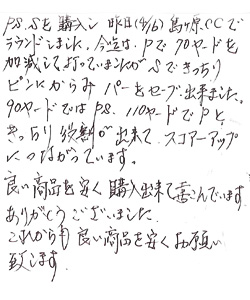 PS.Sを購入し 昨日(4/6)島ヶ原.CCで
ラウンドしました。今迄は、Pで70ヤードを
加減して打っていましたがSできっちり
ピンにからみ パーをセーブ出来ました。
90ヤードではPS. 110ヤードでPと、
きっちり役割が出来て、スコアーアップ
につながっています。
良い商品を安く購入出来て喜こんでいます
ありがとうございました.
これからも良い商品を安くお願い
致します.